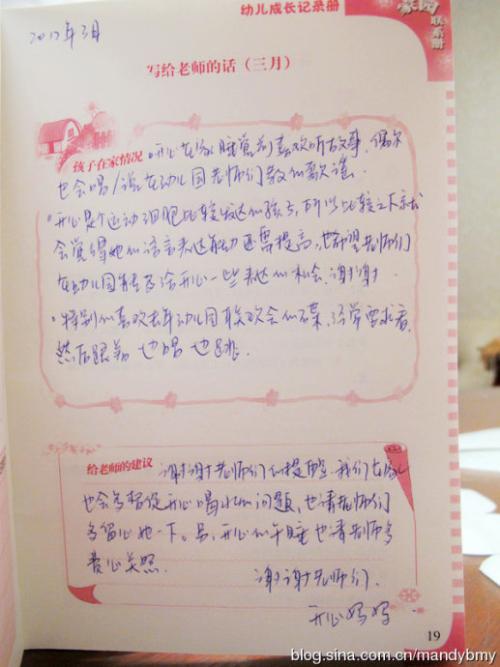 幼儿成长记录册
家园联系册
2012年3月
写给老师的话（三月）
孩子在家情况
·开心在家睡觉前喜欢听故事，偶尔
也会唱/说在幼儿园老师们教的歌谣。
·开心是个运动细胞比较发达的孩子，所以比较之下就
会觉得她的语言表达能力还需提高，也希望老师们
在幼儿园能多给开心一些表达的机会，谢谢。
·特别的喜欢去年幼儿园联欢会的碟，经常要求看，
然后跟着 也唱 也跳。
给老师的建议
谢谢老师们的提醒，我们在家
也会多督促开心喝水的问题，也请老师们
多留心她一下。另，开心的午睡也请老师多
费心关照。
谢谢老师们。
开心妈妈
19
blog.sina.com.cn/mandybmy